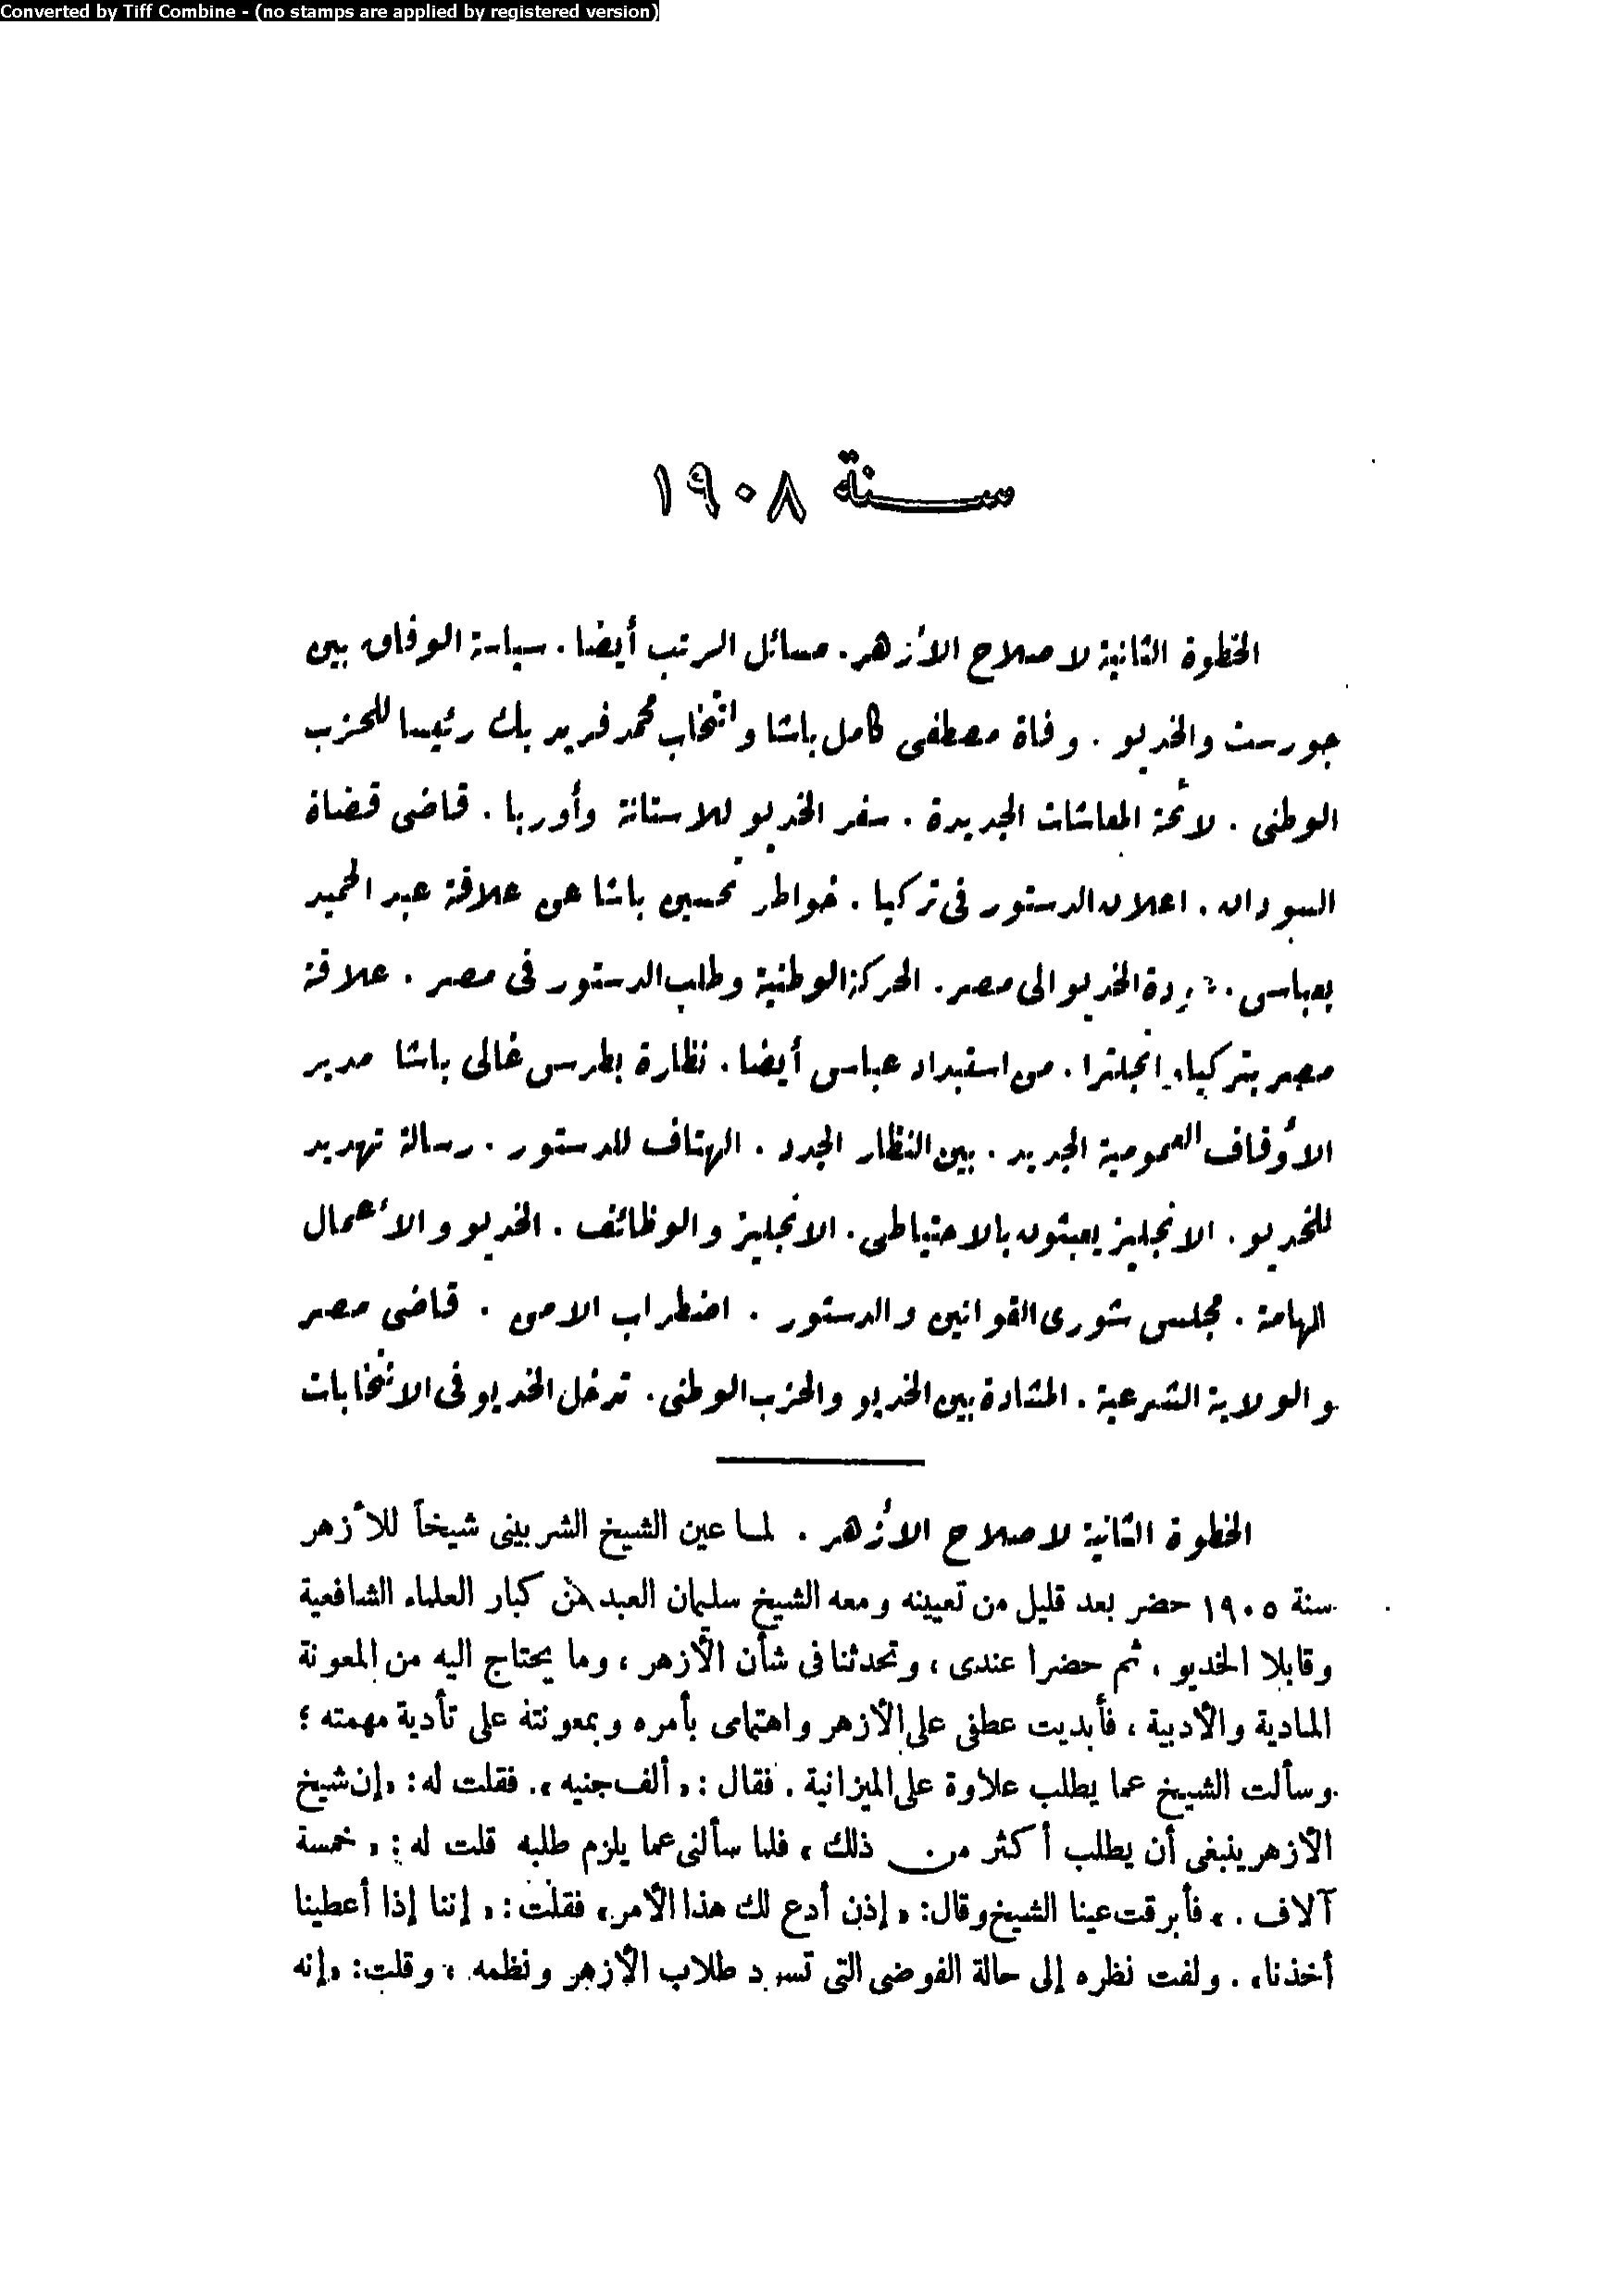 Converted by Tiff Combine - (no stamps are applied by registered version)
سنة ١٩٠٨
الخطوة الثانية لاصلاح الأزهر . مسائل الرتب أيضا . سياسة الوفاق بين
جورست والخديو . وفاة مصطفى كامل باشا وانتخاب محمد فريد بك رئيسا للحزب
الوطنى . لائحة المعاشات الجديدة . سفر الخديو للاستانة وأوربا . قاضى قضاة
السودان . اعلان الدستور فى تركيا . خواطر تحسين باشا عن علاقة عبد الحميد
بعباس . الخديو الى مصر . الحركة الوطنية وطلب الدستور فى مصر . علاقة
مصر بتركيا وانجلترا . من استبداد عباس أيضا . نظارة بطرس غالى باشا مدير
الأوقاف العمومية الجديد . بين النظار الجدد . الهتاف للدستور . رسالة تهديد
للخديو . الانجليز يعبثون بالاحتياطى . الانجليز والوظائف . الخديو والأعمال
الهامة . مجلس شورى القوانين والدستور . اضطراب الامن . قاضى مصر
والولاية الشرعية . المشادة بين الخديو والحزب الوطنى . تدخل الخديو فى الانتخابات
الخطوة الثانية لاصلاح الأزهر . لما عين الشيخ الشربينى شيخاً للأزهر
سنة ١٩٠٥ حضر بعد قليل من تعيينه ومعه الشيخ سليمان العبد من كبار العلماء الشافعية
وقابلا الخديو ، ثم حضرا عندى ، وتحدثنا فى شأن الأزهر ، وما يحتاج اليه من المعونة
المادية والأدبية ، فأبديت عطفى على الأزهر واهتمامى بأمره وبمعونته على تأدية مهمته ؛
وسألت الشيخ عما يطلب علاوة على الميزانية . فقال : « ألف جنيه » . فقلت له : « إن شيخ
الأزهر ينبغى أن يطلب أكثر من ذلك » فلما سألنى عما يلزم طلبه قلت له : « خمسة
آلاف . » فأبرقت عينا الشيخ وقال : « إذن أدع لك هذا الأمر » فقلت : « إننا إذا أعطينا
أخذنا » . ولفت نظره إلى حالة الفوضى التى تسود طلاب الأزهر ونظمه ، وقلت : « إنه